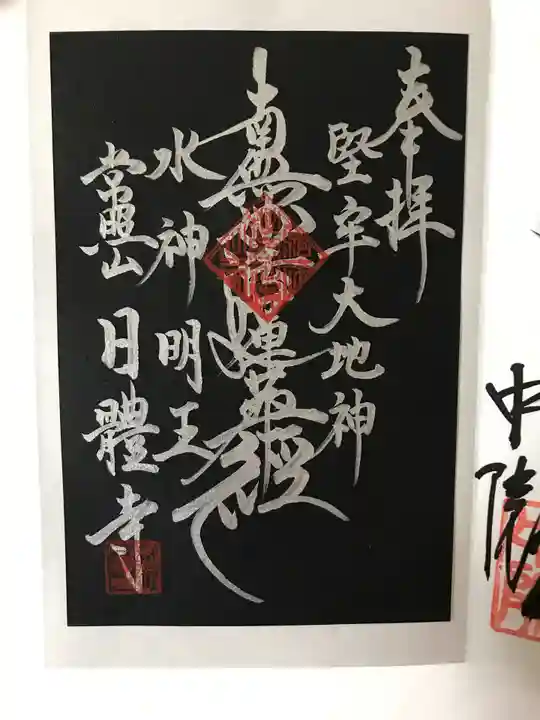 奉拝
堅牢大地神
南無妙法蓮華経
水神明王
常題山 日體寺
中
院